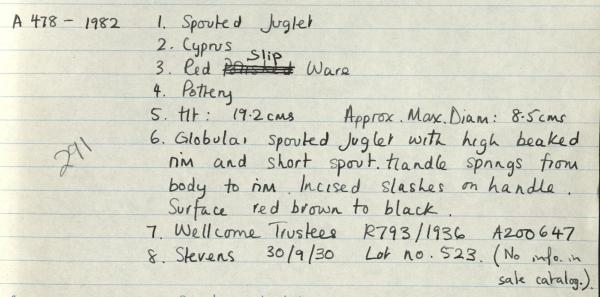 A 478 - 1982 1. Spouted Juglet
2. Cyprus
3. Red Slip Ware
4. Pottery
5. Ht: 19.2 cms Approx. Max. Diam: 8.5 cms
6. Globular spouted Juglet with high beaked
rim and short spout. Handle springs from
body to rim. Incised slashes on handle.
Surface red brown to black.
291
7. Wellcome Trustees R793/1936 A200647
8. Stevens 30/9/30 Lot no. 523. (No info. in
sale catalog.).